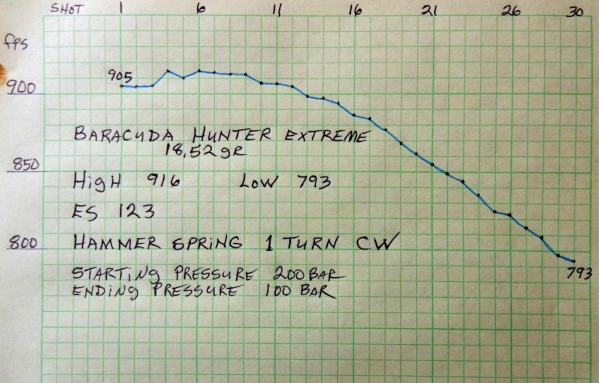 SHOT 1 6 11 16 21 26 30
fps
905
900
BARACUDA HUNTER EXTREME
18,52 gR
850
HigH 916 Low 793
ES 123
800
HAMMER SPRING 1 TURN CW
793
STARTiNg PRESSURE 200 BAR
ENDiNg PRESSURE 100 BAR